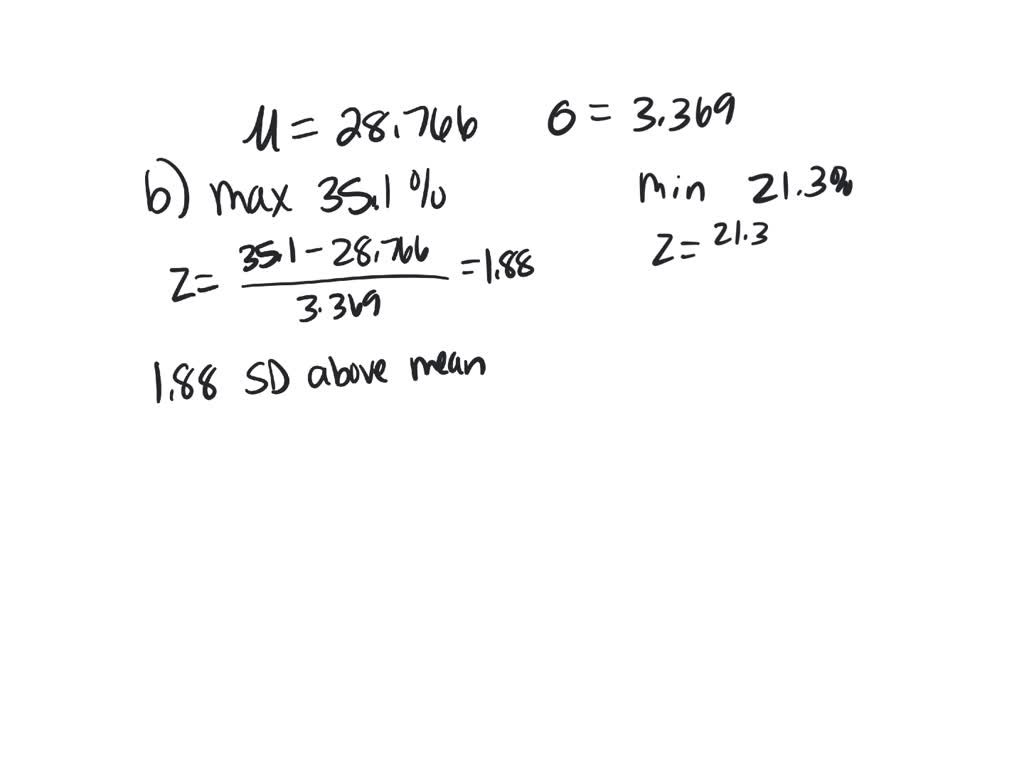 μ = 28.766 σ = 3.369
b) max 35.1 % min 21.3%
z = (35.1 - 28.766) / 3.369 = 1.88 z = 21.3
1.88 SD above mean